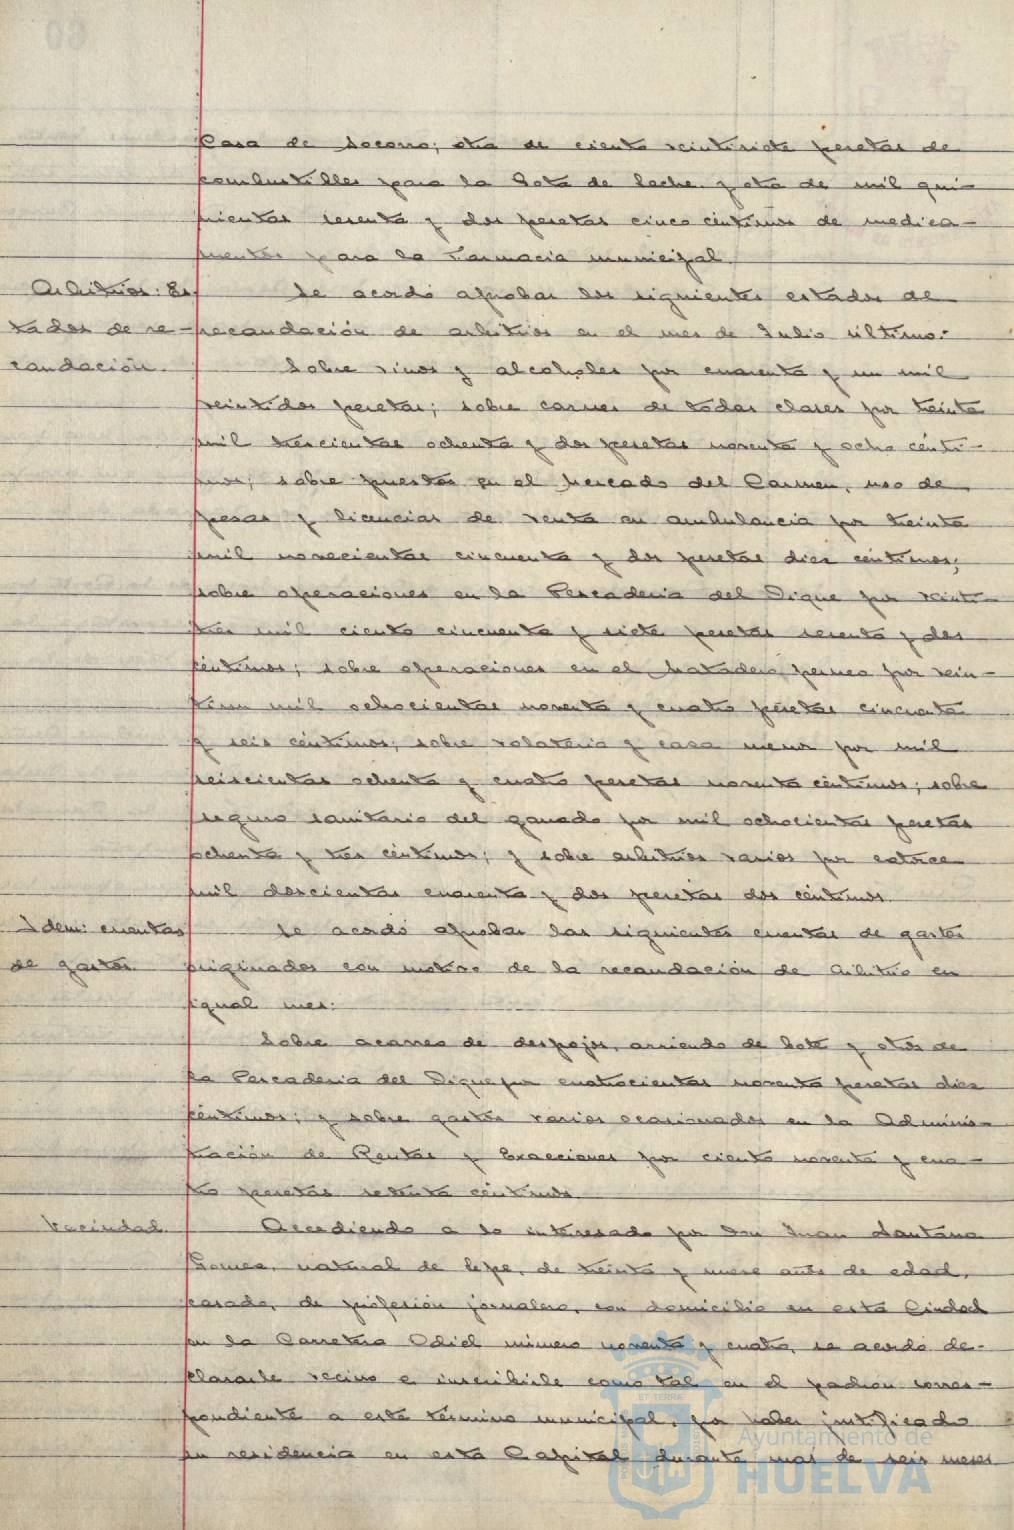 Casa de Socorro; otra de ciento veintisiete pesetas de
combustibles para la Gota de Leche y otra de mil qui-
nientas sesenta y dos pesetas cinco céntimos de medica-
mentos para la Farmacia municipal.
Arbitrios: Es-
tados de re-
caudación.
Se acordó aprobar los siguientes estados de
recaudación de arbitrios en el mes de Julio último:
Sobre vinos y alcoholes por cuarenta y un mil
veintidos pesetas; sobre carnes de todas clases por treinta
mil trescientas ochenta y dos pesetas noventa y ocho cénti-
mos; sobre puestos en el Mercado del Carmen, uso de
pesas y licencias de venta en ambulancia por treinta
mil novecientas cincuenta y dos pesetas diez céntimos;
sobre operaciones en la Pescaderia del Dique por veinti-
tres mil ciento cincuenta y siete pesetas sesenta y dos
céntimos; sobre operaciones en el Matadero, perneo por vein-
tiun mil ochocientas noventa y cuatro pesetas cincuenta
y seis céntimos; sobre volateria y caza menor por mil
seiscientas ochenta y cuatro pesetas noventa céntimos; sobre
seguro sanitario del ganado por mil ochocientas pesetas
ochenta y tres céntimos; y sobre arbitrios varios por catorce
mil doscientas cuarenta y dos pesetas dos céntimos.
Idem: cuentas
de gastos.
Se acordó aprobar las siguientes cuentas de gastos
originados con motivo de la recaudación de Arbitrios en
igual mes:
Sobre acarreo de despojos, arriendo de bote y otros de
la Pescaderia del Dique por cuatrocientas noventa pesetas diez
céntimos; y sobre gastos varios ocasionados en la Adminis-
tración de Rentas y Exacciones por ciento noventa y cua-
tro pesetas setenta céntimos.
Vecindad.
Accediendo a lo interesado por Don Juan Santana
Gomez, natural de Lepe, de treinta y nueve años de edad,
casado, de profesión jornalero, con domicilio en esta Ciudad
en la Carretera Odiel número noventa y cuatro, se acordó de-
clararle vecino e inscribirle como tal en el padron corres-
pondiente a este término municipal, por haber justificado
su residencia en esta Capital durante mas de seis meses
Ayuntamiento de
HUELVA